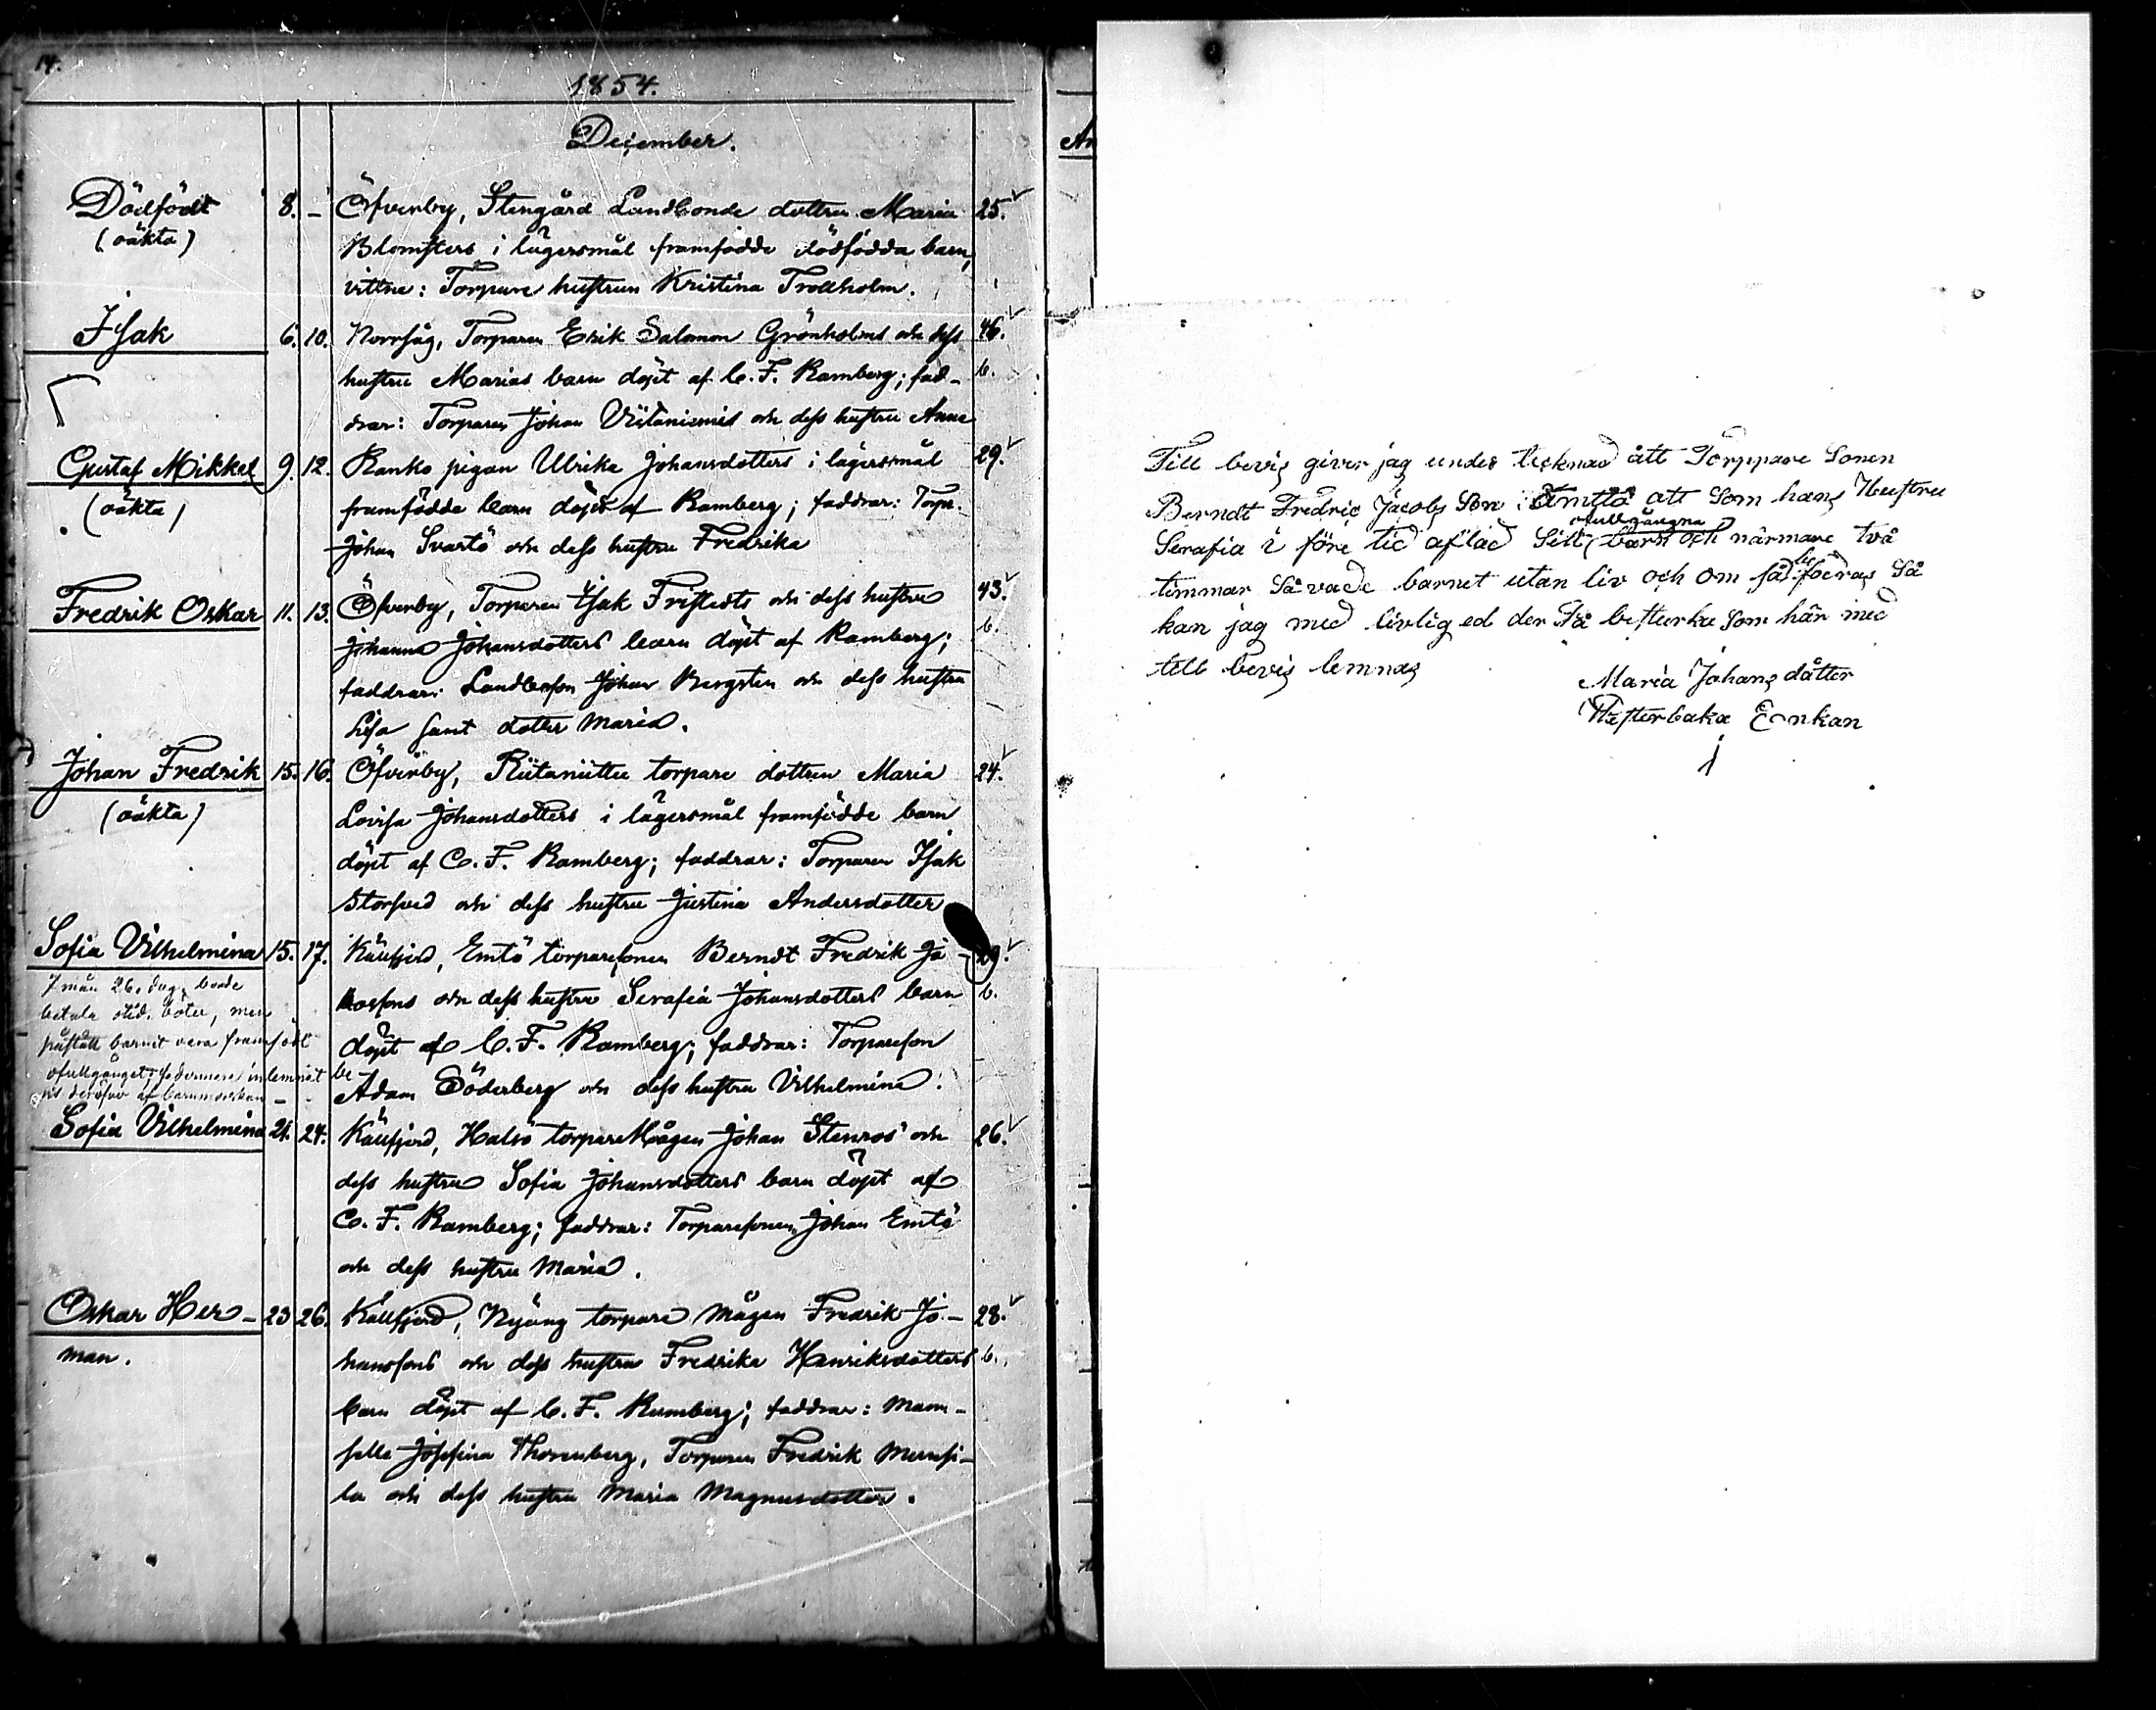 14.
1854.
December.
Dödfödt 8. – Öfverby, Stengård Landbonde dottren Maria 25.
(oäkta) Blomsters i lägersmål framfödde dödfödda barn,
vittne: Torpare hustrun Kristina Trollholm.
Isak 6. 10. Torparen Erik Salomon Grönholms och dess 46.
hustru Marias barn döpt af C. F. Ramberg; fad- b.
drar: Torparen Johan och dess hustru Anna
Gustaf Mikkel 9. 12. Ranko pigan Ulrika Johansdotters i lägersmål 29.
(oäkta) framfödde barn döpt af Ramberg; faddrar: Torp.
Johan Svartö och dess hustru Fredrika
Fredrik Oskar 11. 13. Öfverby, Torparen Isak Fristedts och dess hustru 43.
Johanna Johansdotters barn döpt af Ramberg; b.
faddrar: Johan Bergsten och dess hustru
Lisa samt dotter Maria.
Johan Fredrik 15. 16. Öfverby, torpare dottren Maria 24.
(oäkta) Lovisa Johansdotters i lägersmål framfödde barn
döpt af C. F. Ramberg; faddrar: Torparen Isak
Storsved och dess hustru Justina Andersdotter
Sofia Vilhelmina 15. 17. Källfjerd, Emtö torparesonen Berndt Fredrik Ja- 29.
7 mån 26. dag. borde kossons och dess hustru Serafia Johansdotters barn b.
betala otid. böter, men döpt af C. F. Ramberg; faddrar: Torpareson
påstått barnet vara framfödt Adam Söderberg och dess hustru Vilhelmina.
ofullgånget; inlemnat be-
vis deröfver af barnmorskan –
Sofia Vilhelmina 21. 24. Källfjerd, Halsö torpare Mågen Johan Stenros och 26.
dess hustru Sofia Johansdotters barn döpt af
C. F. Ramberg; faddrar: Torparesonen Johan Emtö
och dess hustru Maria.
Oskar Her- 23 26. Källfjerd, Nyäng torpare Mågen Fredrik Jo- 28.
man. hanssons och dess hustru Fredrika Henriksdotters b.
barn döpt af C. F. Ramberg; faddrar: Mam-
sella Josefina Thorenberg, Torparen Fredrik
la och dess hustru Maria Magnusdotter.
An
Till bevis giver jag under tecknad ått Törppare Sonen
Berndt Fredric Jacobs Son Ämttö att Som hans Hustru
ofullgångna
Serafia i före tid aflad Sitt barn och närmare två
timmar Så vade barnet utan liv och om så fodras Så
kan jag med livlig ed der På besturka Som här med
till bevis lemnas
Maria Johans dåtter
Westerbaka Eenkan